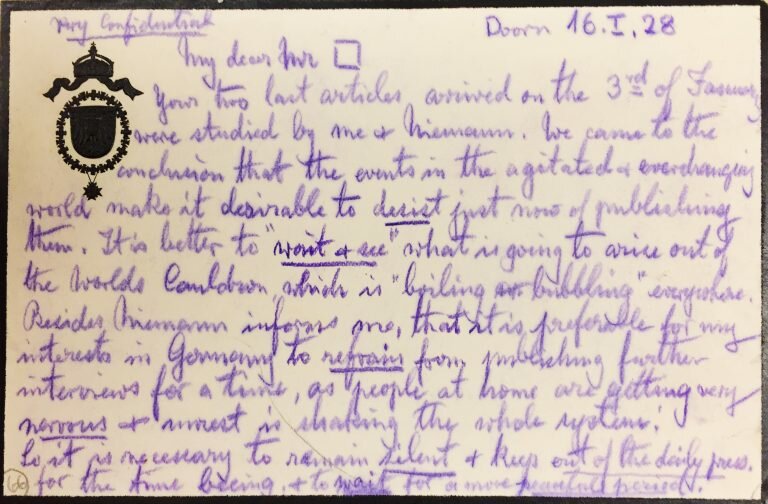 Very Confidential
Doorn 16.I.28
My dear Mr □
Your two last articles arrived on the 3rd of January
were studied by me & Niemann. We came to the
conclusion that the events in the agitated & everchanging
world make it desirable to desist just now of publishing
them. It is better to "wait & see" what is going to arise out of
the Worlds Cauldron, which is "boiling & bubbling" everywhere.
Besides Niemann informs me, that it is preferable for my
interests in Germany to refrain from publishing further
interviews for a time, as people at home are getting very
nervous & unrest is shaking the whole system!
So it is necessary to remain silent & keep out of the daily press.
for the time beeing, & to wait for a more peaceful period.
60